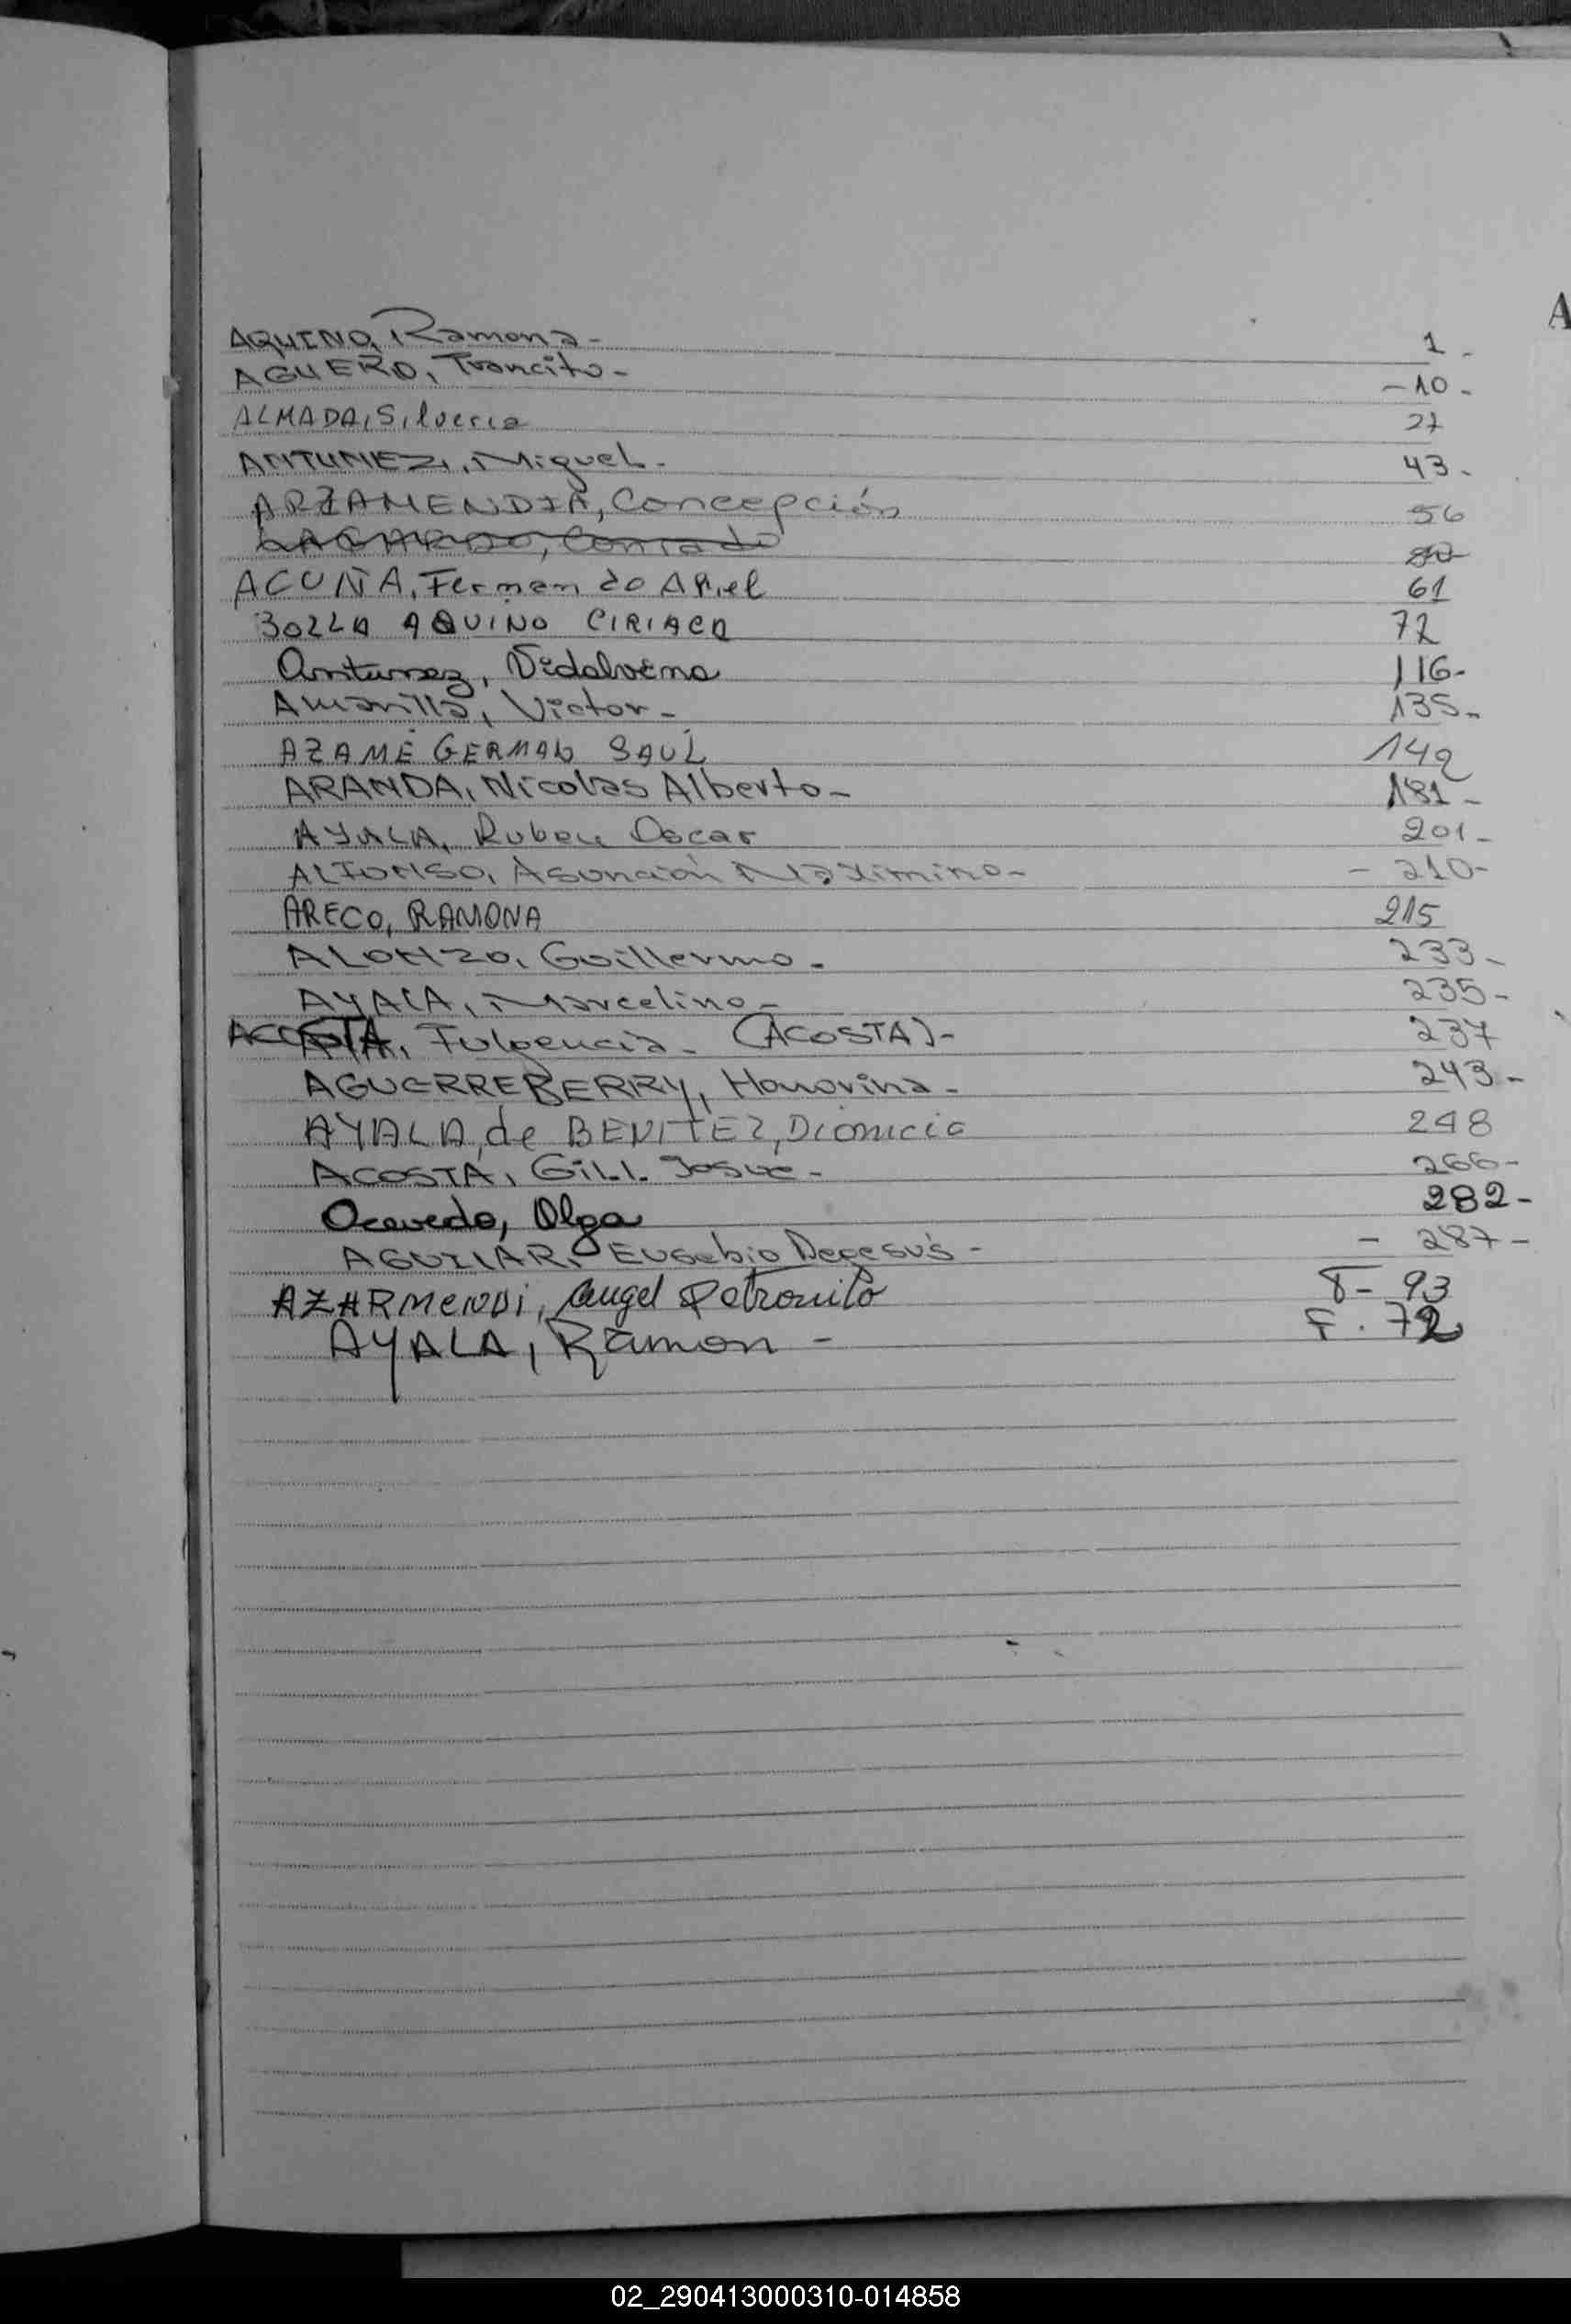 A
AQUINO, Ramona - 1 -
AGUERO, Trancito - - 10 -
ALMADA, Silveria 27
ANTUNEZ, Miguel - 43 -
ARZAMENDIA, Concepción 56
Conrado
ACUÑA, Fernando Ariel 61
BOLLA AQUINO CIRIACA 72
Antunez, Vidalvina 116 -
Amarilla, Victor - 135 -
AZAME GERMAN SAÚL 142
ARANDA, Nicolas Alberto - 181 -
AYALA, Ruben Oscar 201 -
ALFONSO, Asunción Maximino - - 210 -
ARECO, RAMONA 215
ALONZO, Guillermo - 233 -
AYALA, Marcelino - 235 -
ACOSTA, Fulgencia - (ACOSTA) - 237
AGUERREBERRY, Honorina - 243 -
AYALA, de BENITEZ, Dionicia 248
ACOSTA, GILL Josué - 266 -
Acevedo, Olga 282 -
AGUILAR, Eusebio Dejesús - - 287 -
AZARMENDI, Angel Petronilo T - 93
AYALA, Ramon - F. 72
02_290413000310-014858